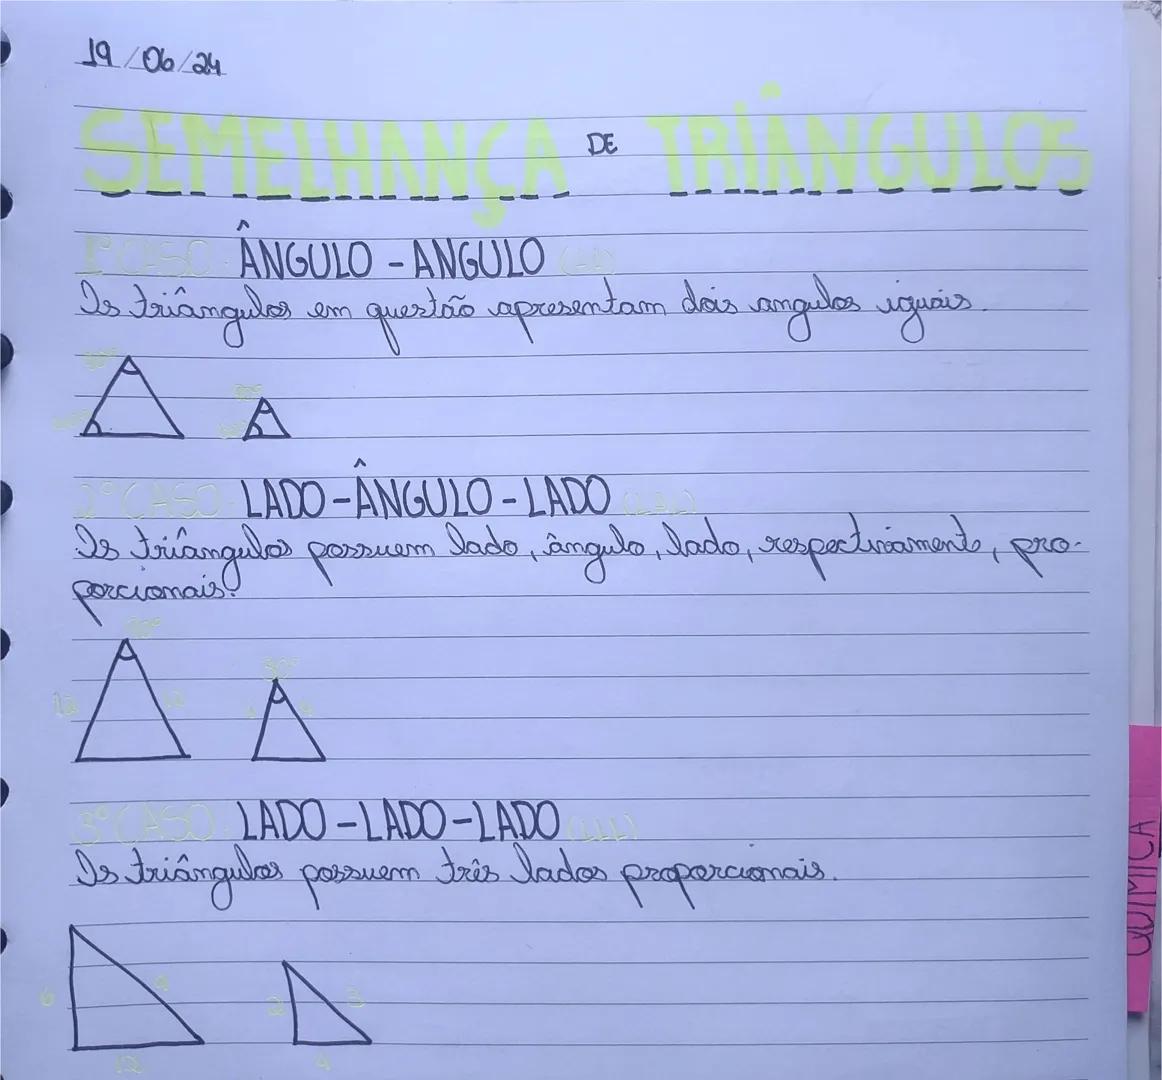 19/06/24
SEMELHANÇA DE TRIÂNGULOS
1º CASO: ÂNGULO - ANGULO (AA)
Os triângulos em questão apresentam dois angulos iguais.
2º CASO: LADO - ÂNGULO - LADO (LAL)
Os triângulos possuem lado, ângulo, lado, respectivamente, pro-
porcionais.
30º
12
3º CASO: LADO - LADO - LADO (LLL)
Os triângulos possuem três lados proporcionais.
6 9 2 3
12 4
QUÍMICA